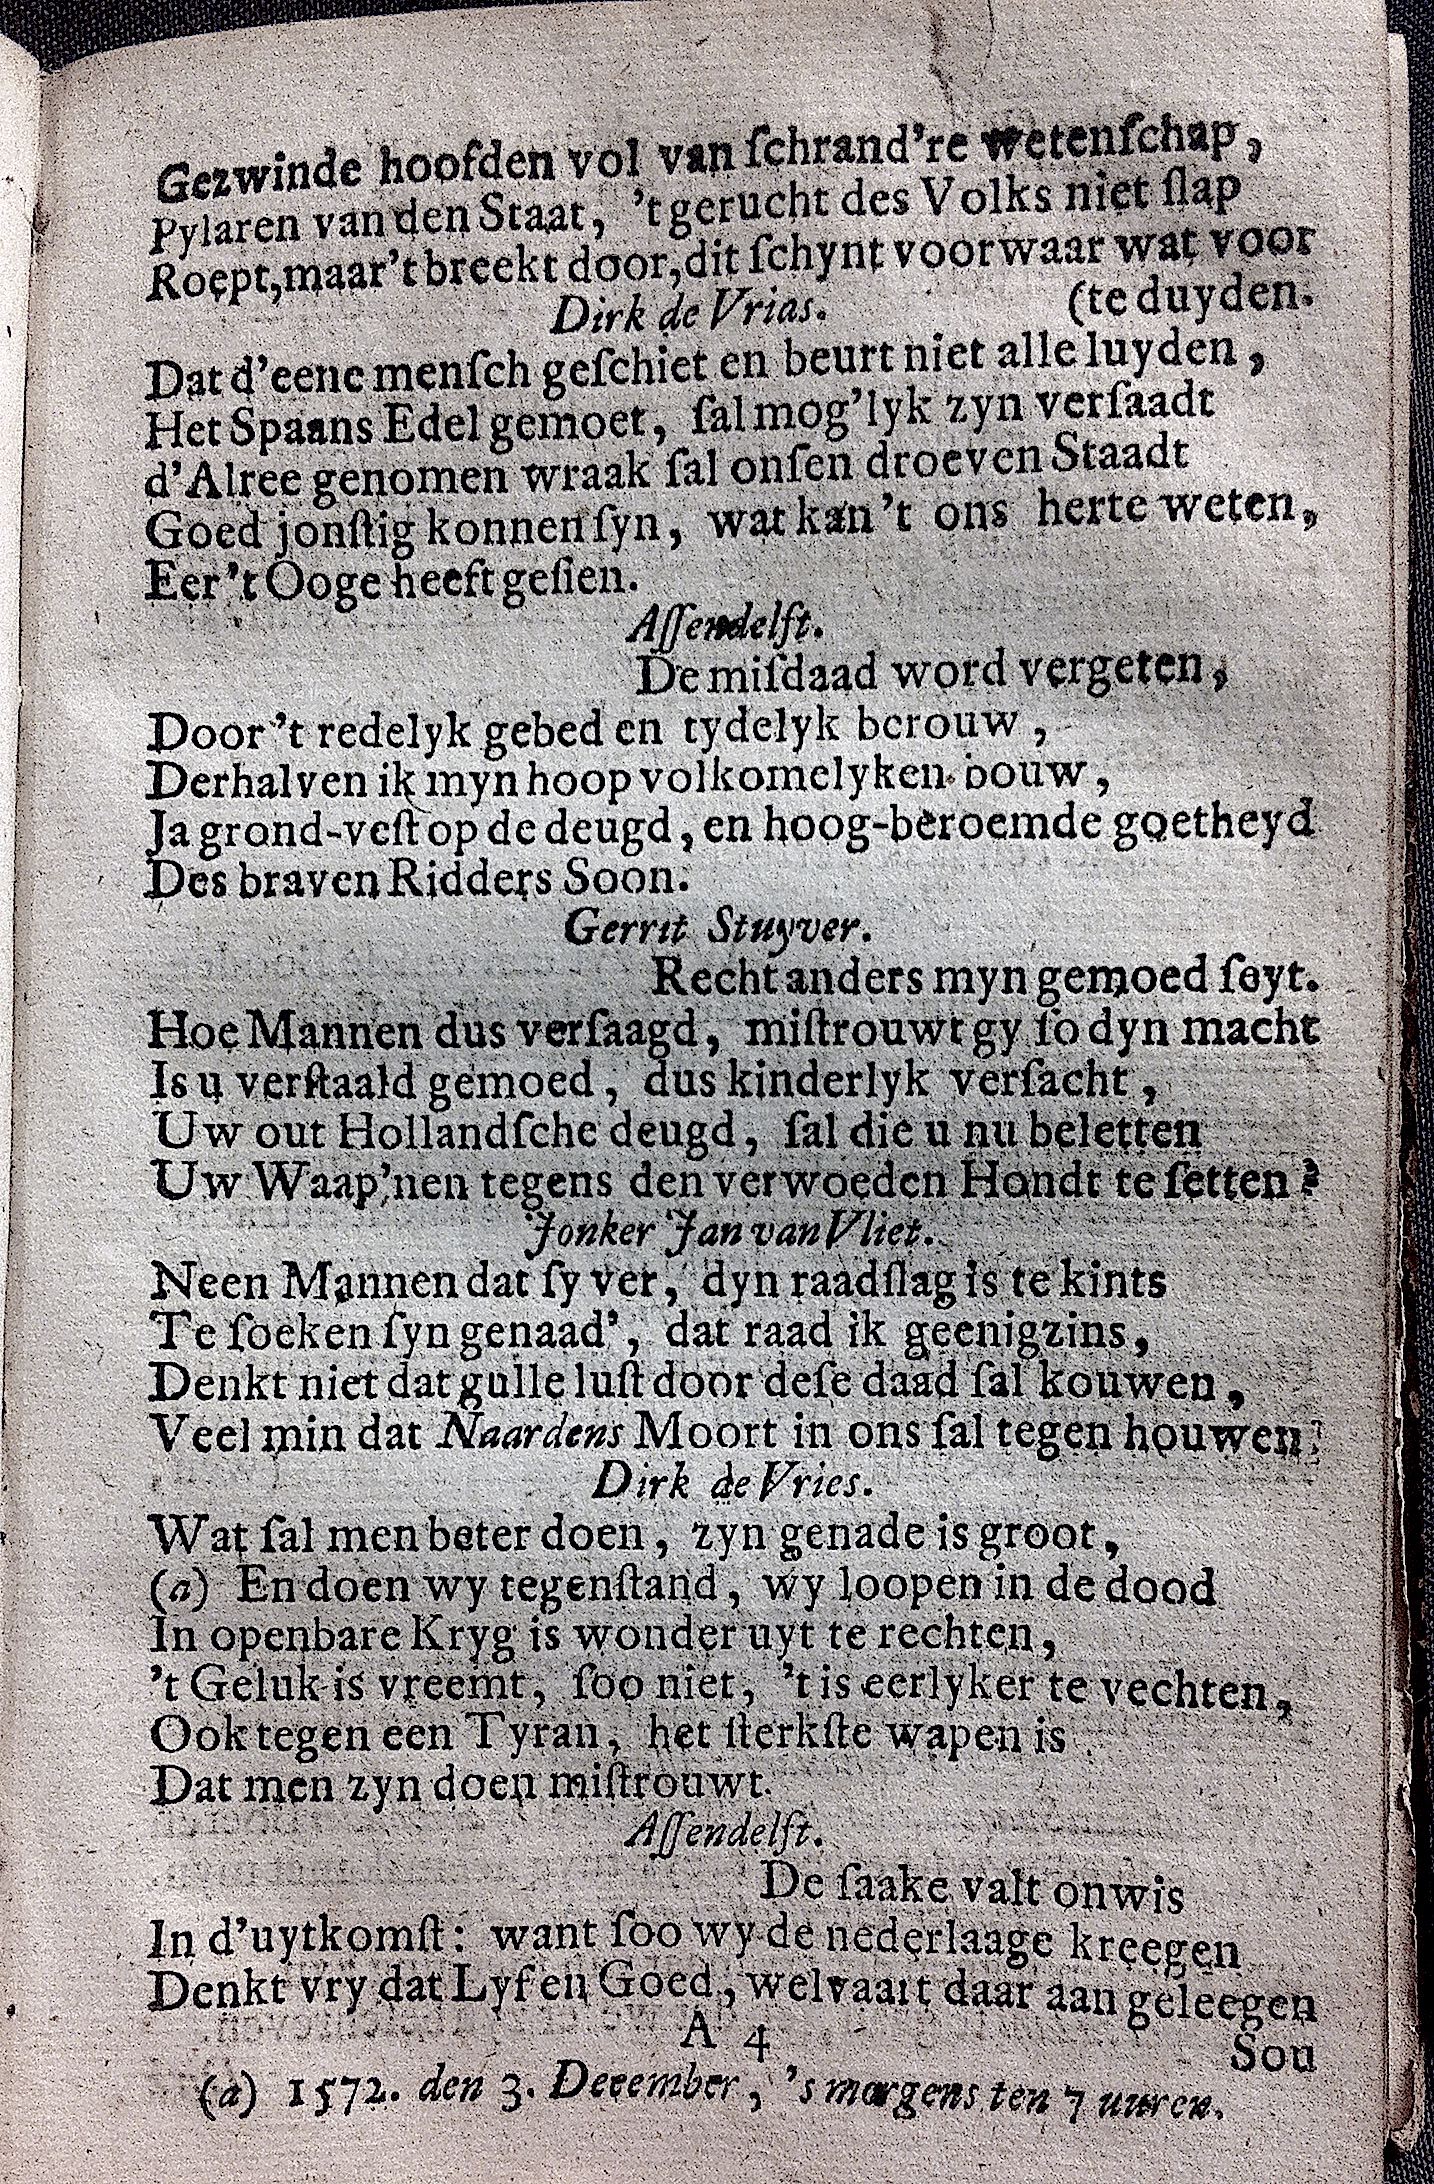 Gezwinde hoofden vol van ſchrand're wetenſchap,
Pylaren van den Staat, 't gerucht des Volks niet ſlap
Roept, maar 't breekt door, dit ſchynt voorwaar wat voor
Dirk de Vrias. (te duyden.
Dat d'eene menſch geſchiet en beurt niet alle luyden,
Het Spaans Edel gemoet, ſal mog'lyk zyn verſaadt
d'Alree genomen wraak ſal onſen droeven Staadt
Goed jonſtig konnen ſyn, wat kan 't ons herte weten,
Eer 't Ooge heeft geſien.
Aſſendelft.
De miſdaad word vergeten,
Door 't redelyk gebed en tydelyk berouw,
Derhalven ik myn hoop volkomelyken bouw,
Ja grond-veſt op de deugd, en hoog-beroemde goetheyd
Des braven Ridders Soon.
Gerrit Stuyver.
Recht anders myn gemoed ſeyt.
Hoe Mannen dus verſaagd, miſtrouwt gy ſo dyn macht
Is u verſtaald gemoed, dus kinderlyk verſacht,
Uw out Hollandſche deugd, ſal die u nu beletten
Uw Waap'nen tegens den verwoeden Hondt te ſetten?
Jonker Jan van Vliet.
Neen Mannen dat ſy ver, dyn raadſlag is te kints
Te ſoeken ſyn genaad', dat raad ik geenigzins,
Denkt niet dat gulle luſt door deſe daad ſal kouwen,
Veel min dat Naardens Moort in ons ſal tegen houwen?
Dirk de Vries.
Wat ſal men beter doen, zyn genade is groot,
(a) En doen wy tegenſtand, wy loopen in de dood
In openbare Kryg is wonder uyt te rechten,
't Geluk is vreemt, ſoo niet, 't is eerlyker te vechten,
Ook tegen een Tyran, het ſterkſte wapen is
Dat men zyn doen miſtrouwt.
Aſſendelft.
De ſaake valt onwis
In d'uytkomſt: want ſoo wy de nederlaage kreegen
Denkt vry dat Lyf en Goed, welvaart daar aan geleegen
A 4
Sou
(a) 1572. den 3. December, 's morgens ten 7 uuren.